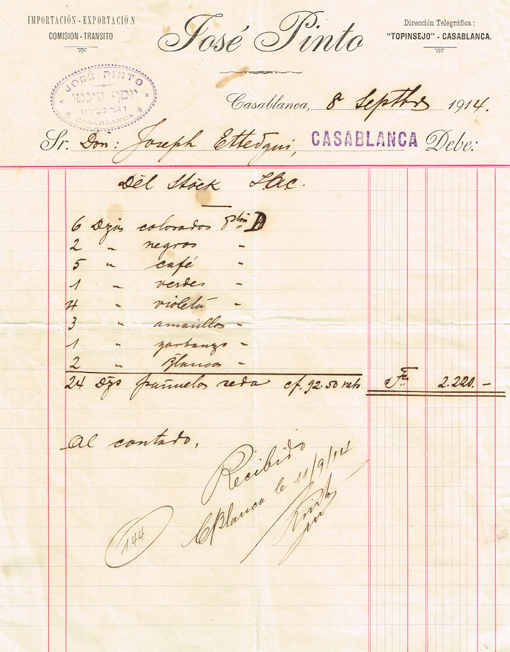 IMPORTACIÓN - EXPORTACIÓN
COMISION - TRANSITO
José Pinto
Dirección Telegráfica:
"TOPINSEJO" - CASABLANCA.
JOSÉ PINTO
יוסף פינטו
CASABLANCA
Casablanca, 8 Septbre 1914.
Sr. Don: Joseph Ettedgui, CASABLANCA Debe:
Del Stock
6 Dzas colorados D
2 " negros "
5 " café "
1 " verdes "
4 " violeta "
3 " amarillos "
1 " garbanzo "
2 " blancos "
24 Dzs pañuelos seda cf. 92.50 neto Fcs 2.220.-
Al contado,
Recibido
CBlanca le 11/9/14
144